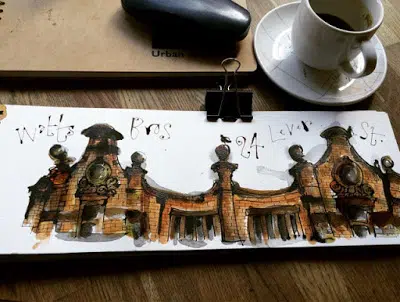 Urban
Watts Bros 24 Lever St.